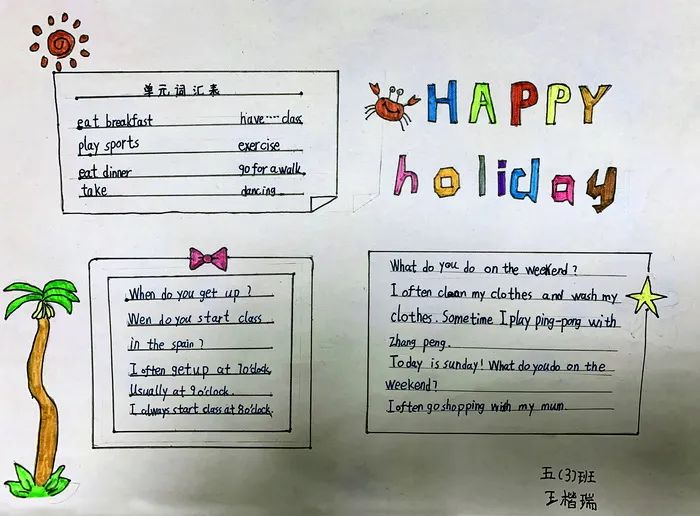 单元词汇表
eat breakfast have····class
play sports exercise
eat dinner go for a walk
take dancing
HAPPY
holiday
When do you get up?
Wen do you start class
in the spain?
I often get up at 7o'clock
Usually at 9 o'clock.
I always start class at 8o'clock.
What do you do on the weekend?
I often clean my clothes and wash my
clothes. Sometime I play ping-pong with
zhang peng.
Today is sunday! What do you do on the
weekend?
I often go shopping with my mum
五(3)班
王楷瑞